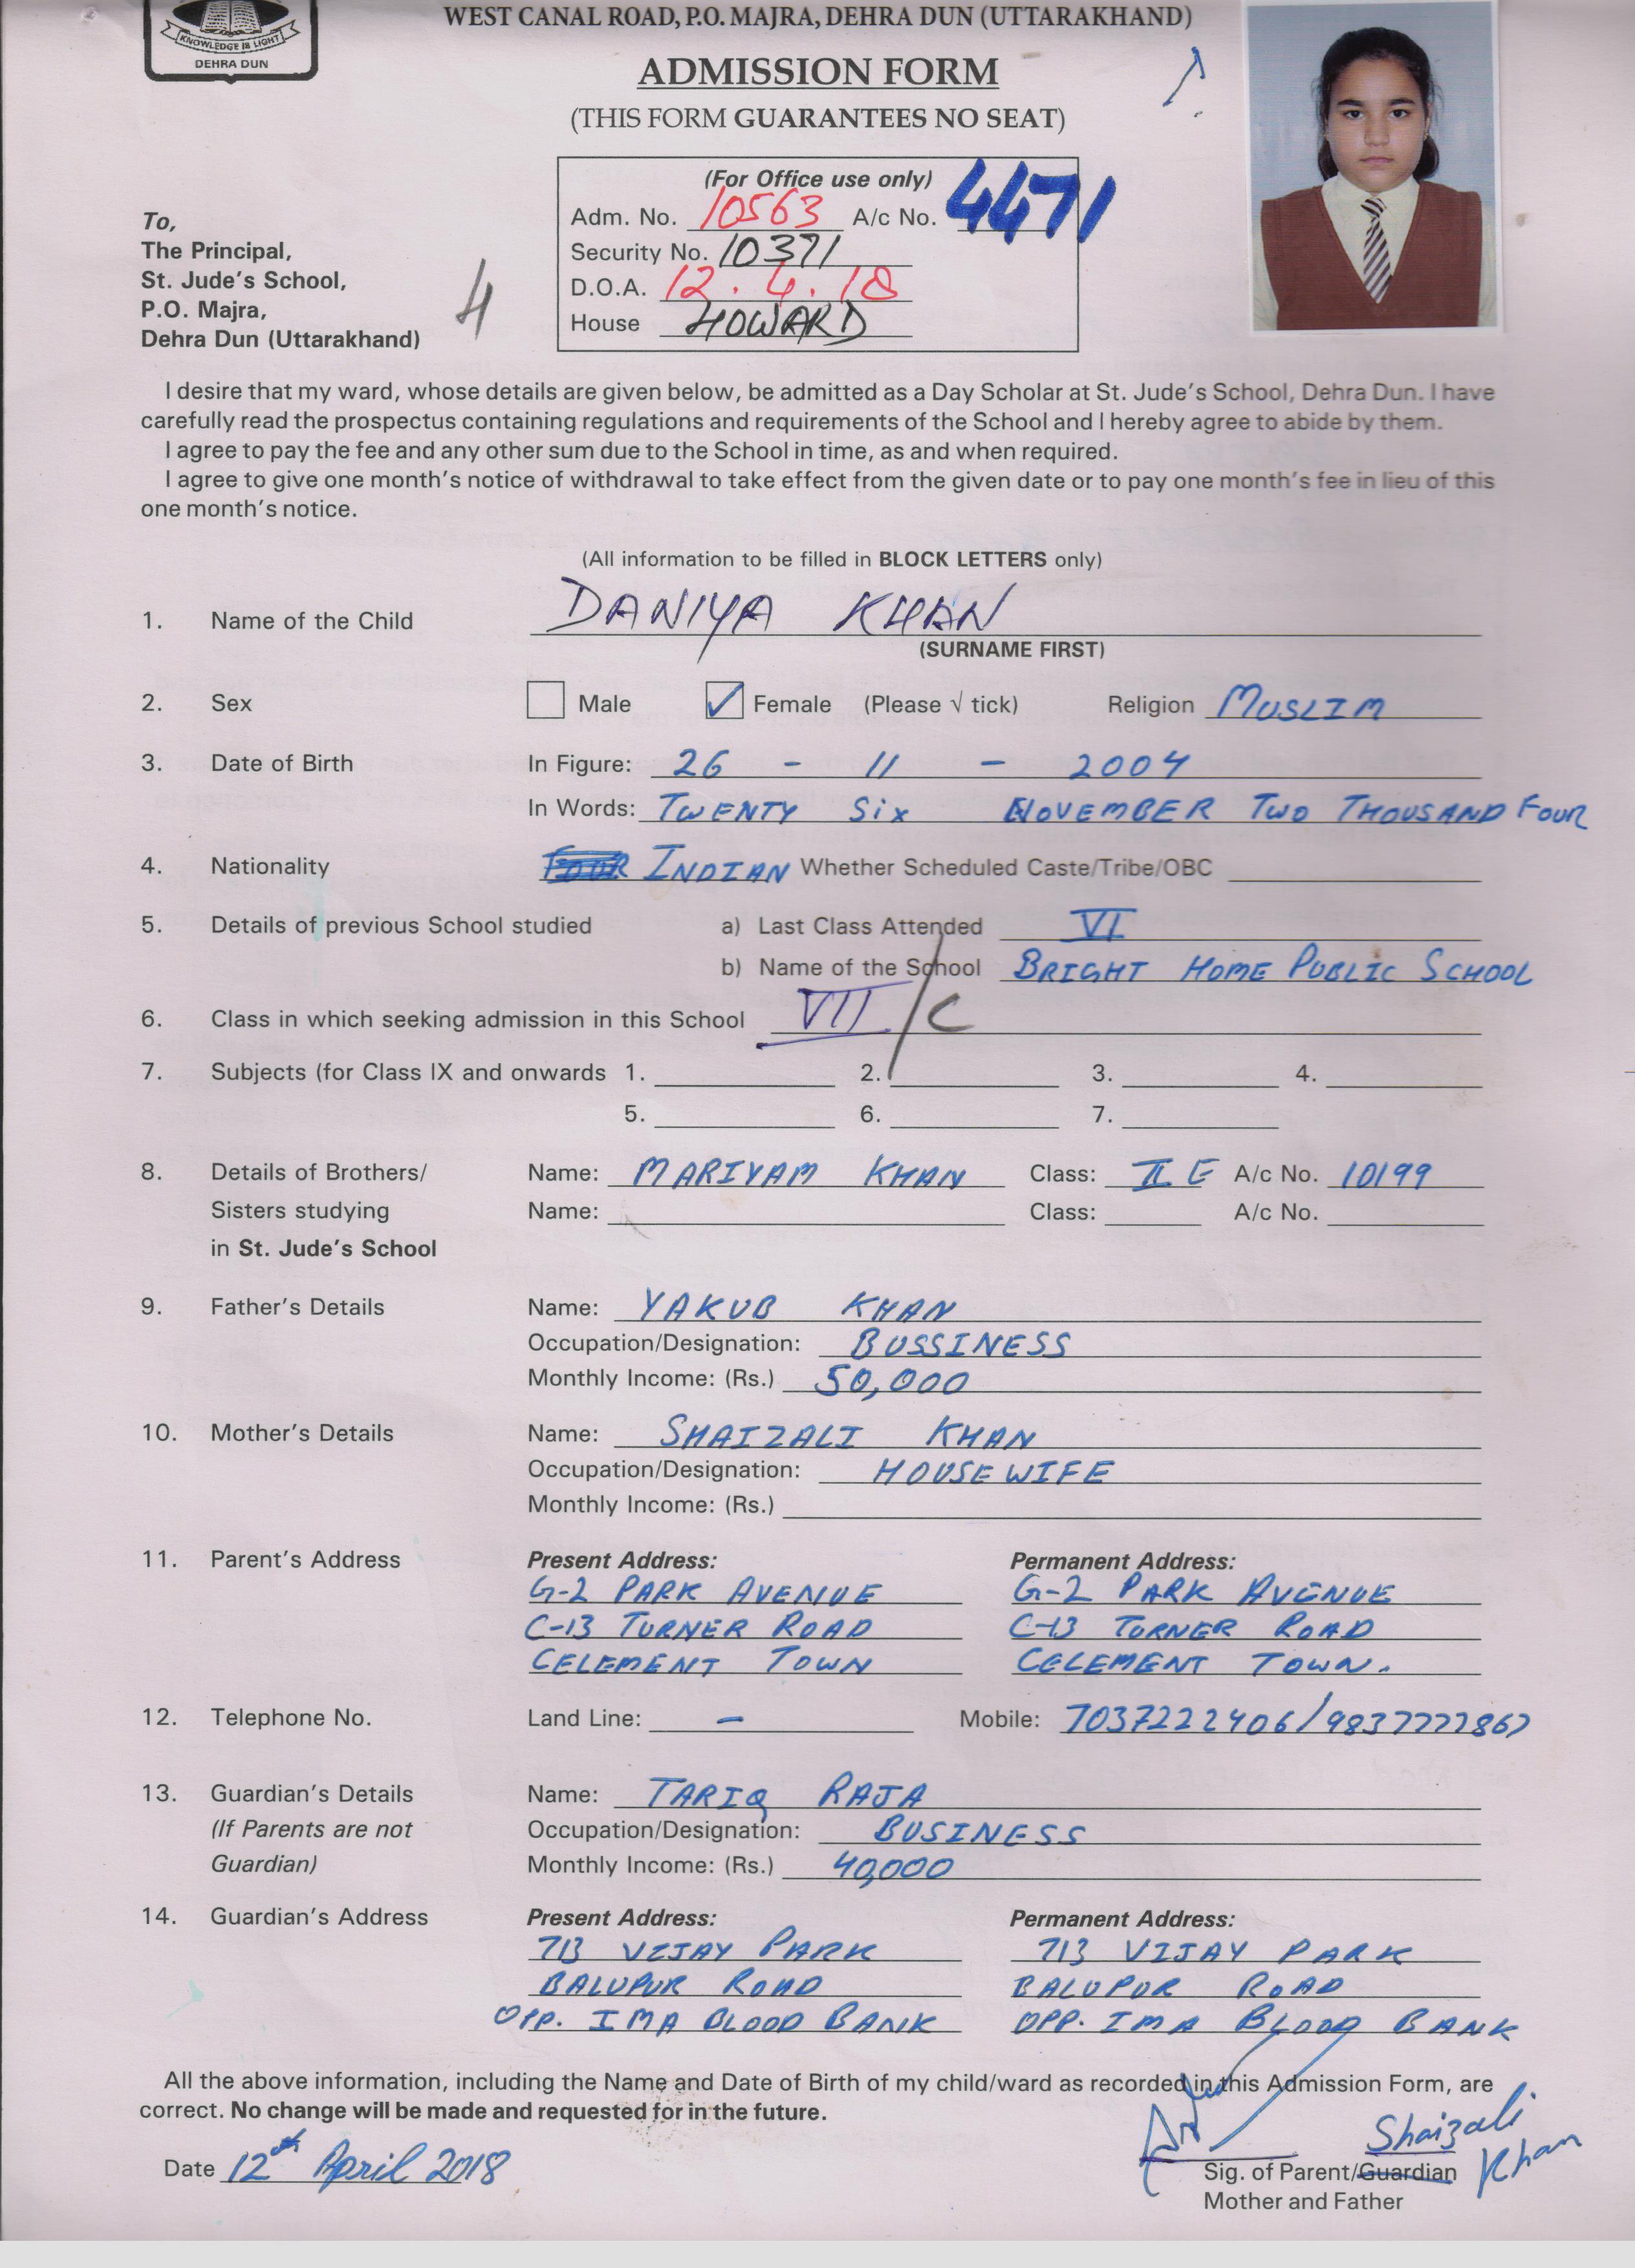 WEST CANAL ROAD, P.O. MAJRA, DEHRA DUN (UTTARAKHAND)
KNOWLEDGE IS LIGHT
DEHRA DUN
ADMISSION FORM
(THIS FORM GUARANTEES NO SEAT)
(For Office use only)
Adm. No. 10563 A/c No. 4471
Security No. 10371
D.O.A. 12.4.18
House HOWARD
To,
The Principal,
St. Jude's School,
P.O. Majra,
Dehra Dun (Uttarakhand)
4
I desire that my ward, whose details are given below, be admitted as a Day Scholar at St. Jude's School, Dehra Dun. I have
carefully read the prospectus containing regulations and requirements of the School and I hereby agree to abide by them.
I agree to pay the fee and any other sum due to the School in time, as and when required.
I agree to give one month's notice of withdrawal to take effect from the given date or to pay one month's fee in lieu of this
one month's notice.
(All information to be filled in BLOCK LETTERS only)
1. Name of the Child DANIYA KHAN
(SURNAME FIRST)
2. Sex Male ✓ Female (Please √ tick) Religion MUSLIM
3. Date of Birth In Figure: 26 - 11 - 2004
In Words: TWENTY SIX NOVEMBER TWO THOUSAND FOUR
4. Nationality INDIAN Whether Scheduled Caste/Tribe/OBC
5. Details of previous School studied a) Last Class Attended VI
b) Name of the School BRIGHT HOME PUBLIC SCHOOL
6. Class in which seeking admission in this School VII/C
7. Subjects (for Class IX and onwards 1. 2. 3. 4.
5. 6. 7.
8. Details of Brothers/ Name: MARIYAM KHAN Class: II E A/c No. 10199
Sisters studying Name: Class: A/c No.
in St. Jude's School
9. Father's Details Name: YAKUB KHAN
Occupation/Designation: BUSSINESS
Monthly Income: (Rs.) 50,000
10. Mother's Details Name: SHAIZALI KHAN
Occupation/Designation: HOUSEWIFE
Monthly Income: (Rs.)
11. Parent's Address Present Address: Permanent Address:
G-2 PARK AVENUE G-2 PARK AVENUE
C-13 TURNER ROAD C-13 TURNER ROAD
CELEMENT TOWN CELEMENT TOWN.
12. Telephone No. Land Line: - Mobile: 7037222406/
13. Guardian's Details Name: TARIQ RAJA
(If Parents are not Occupation/Designation: BUSINESS
Guardian) Monthly Income: (Rs.) 40,000
14. Guardian's Address Present Address: Permanent Address:
713 VIJAY PARK 713 VIJAY PARK
BALUPUR ROAD BALUPUR ROAD
OPP. IMA BLOOD BANK OPP. IMA BLOOD BANK
All the above information, including the Name and Date of Birth of my child/ward as recorded in this Admission Form, are
correct. No change will be made and requested for in the future.
Date 12th April 2018
Shaizali Khan
Sig. of Parent/Guardian
Mother and Father